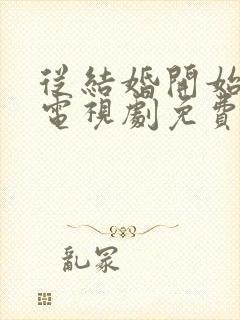 從結婚開始
電視劇免費
亂眾